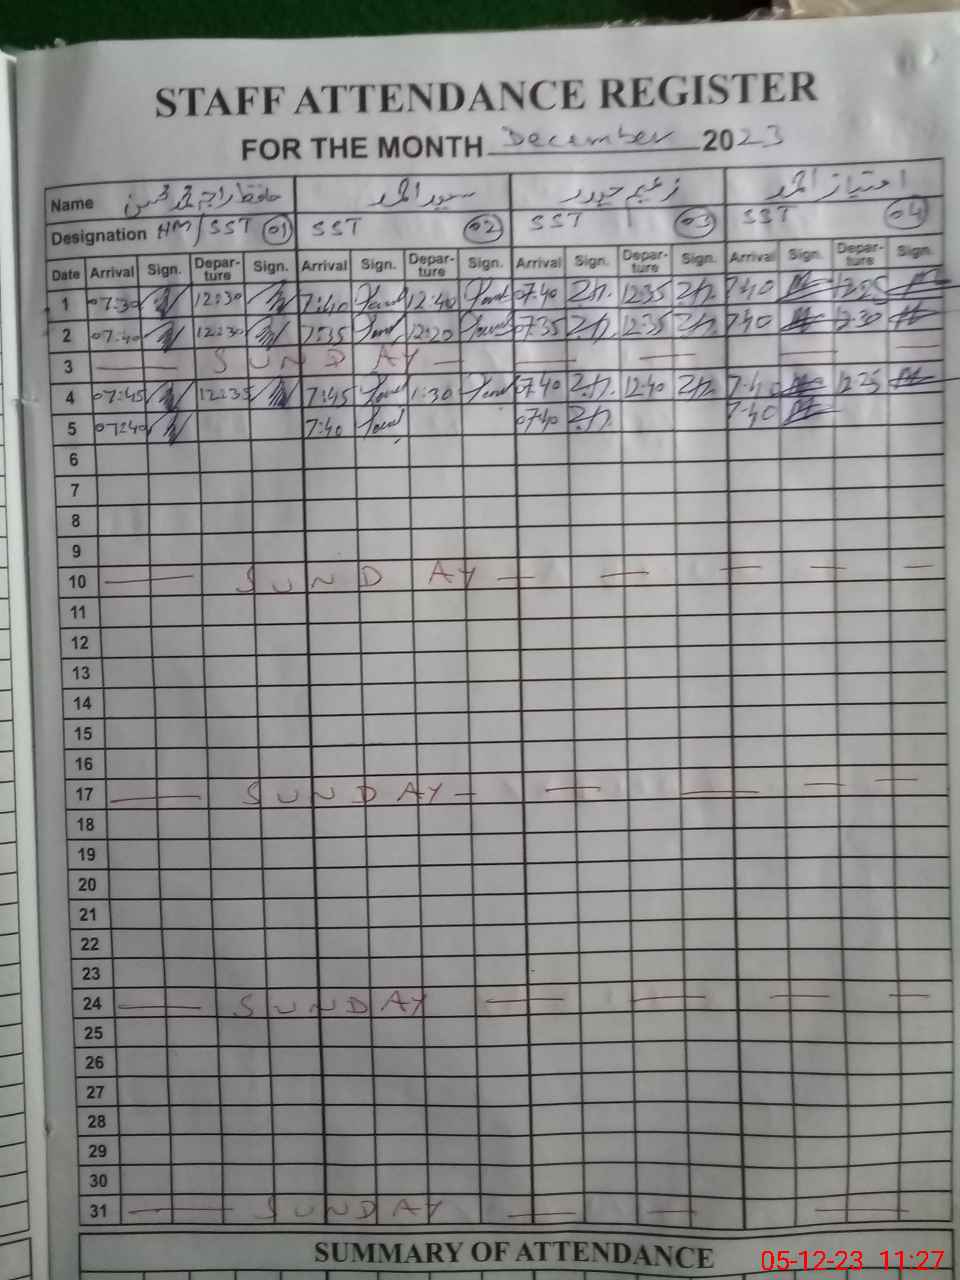 STAFF ATTENDANCE REGISTER
FOR THE MONTH December 2023
Name حافظ راجہ محمد محسن سعید احمد زعیم حیدر امتیاز احمد
Designation HM/SST 01 SST 02 SST 03 SST 04
Date Arrival Sign. Departure Sign. Arrival Sign. Departure Sign. Arrival Sign. Departure Sign. Arrival Sign. Departure Sign.
1 07:30 12:30 7:40 12:40 07:40 12:35 7:40 12:25
2 07:40 12:30 7:35 12:20 07:35 12:35 7:40 12:30
3 SUNDAY
4 07:45 12:35 7:45 1:30 07:40 12:40 7:40 12:25
5 07:40 7:40 07:40 7:40
6
7
8
9
10 SUNDAY
11
12
13
14
15
16
17 SUNDAY
18
19
20
21
22
23
24 SUNDAY
25
26
27
28
29
30
31 SUNDAY
SUMMARY OF ATTENDANCE
05-12-23 11:27